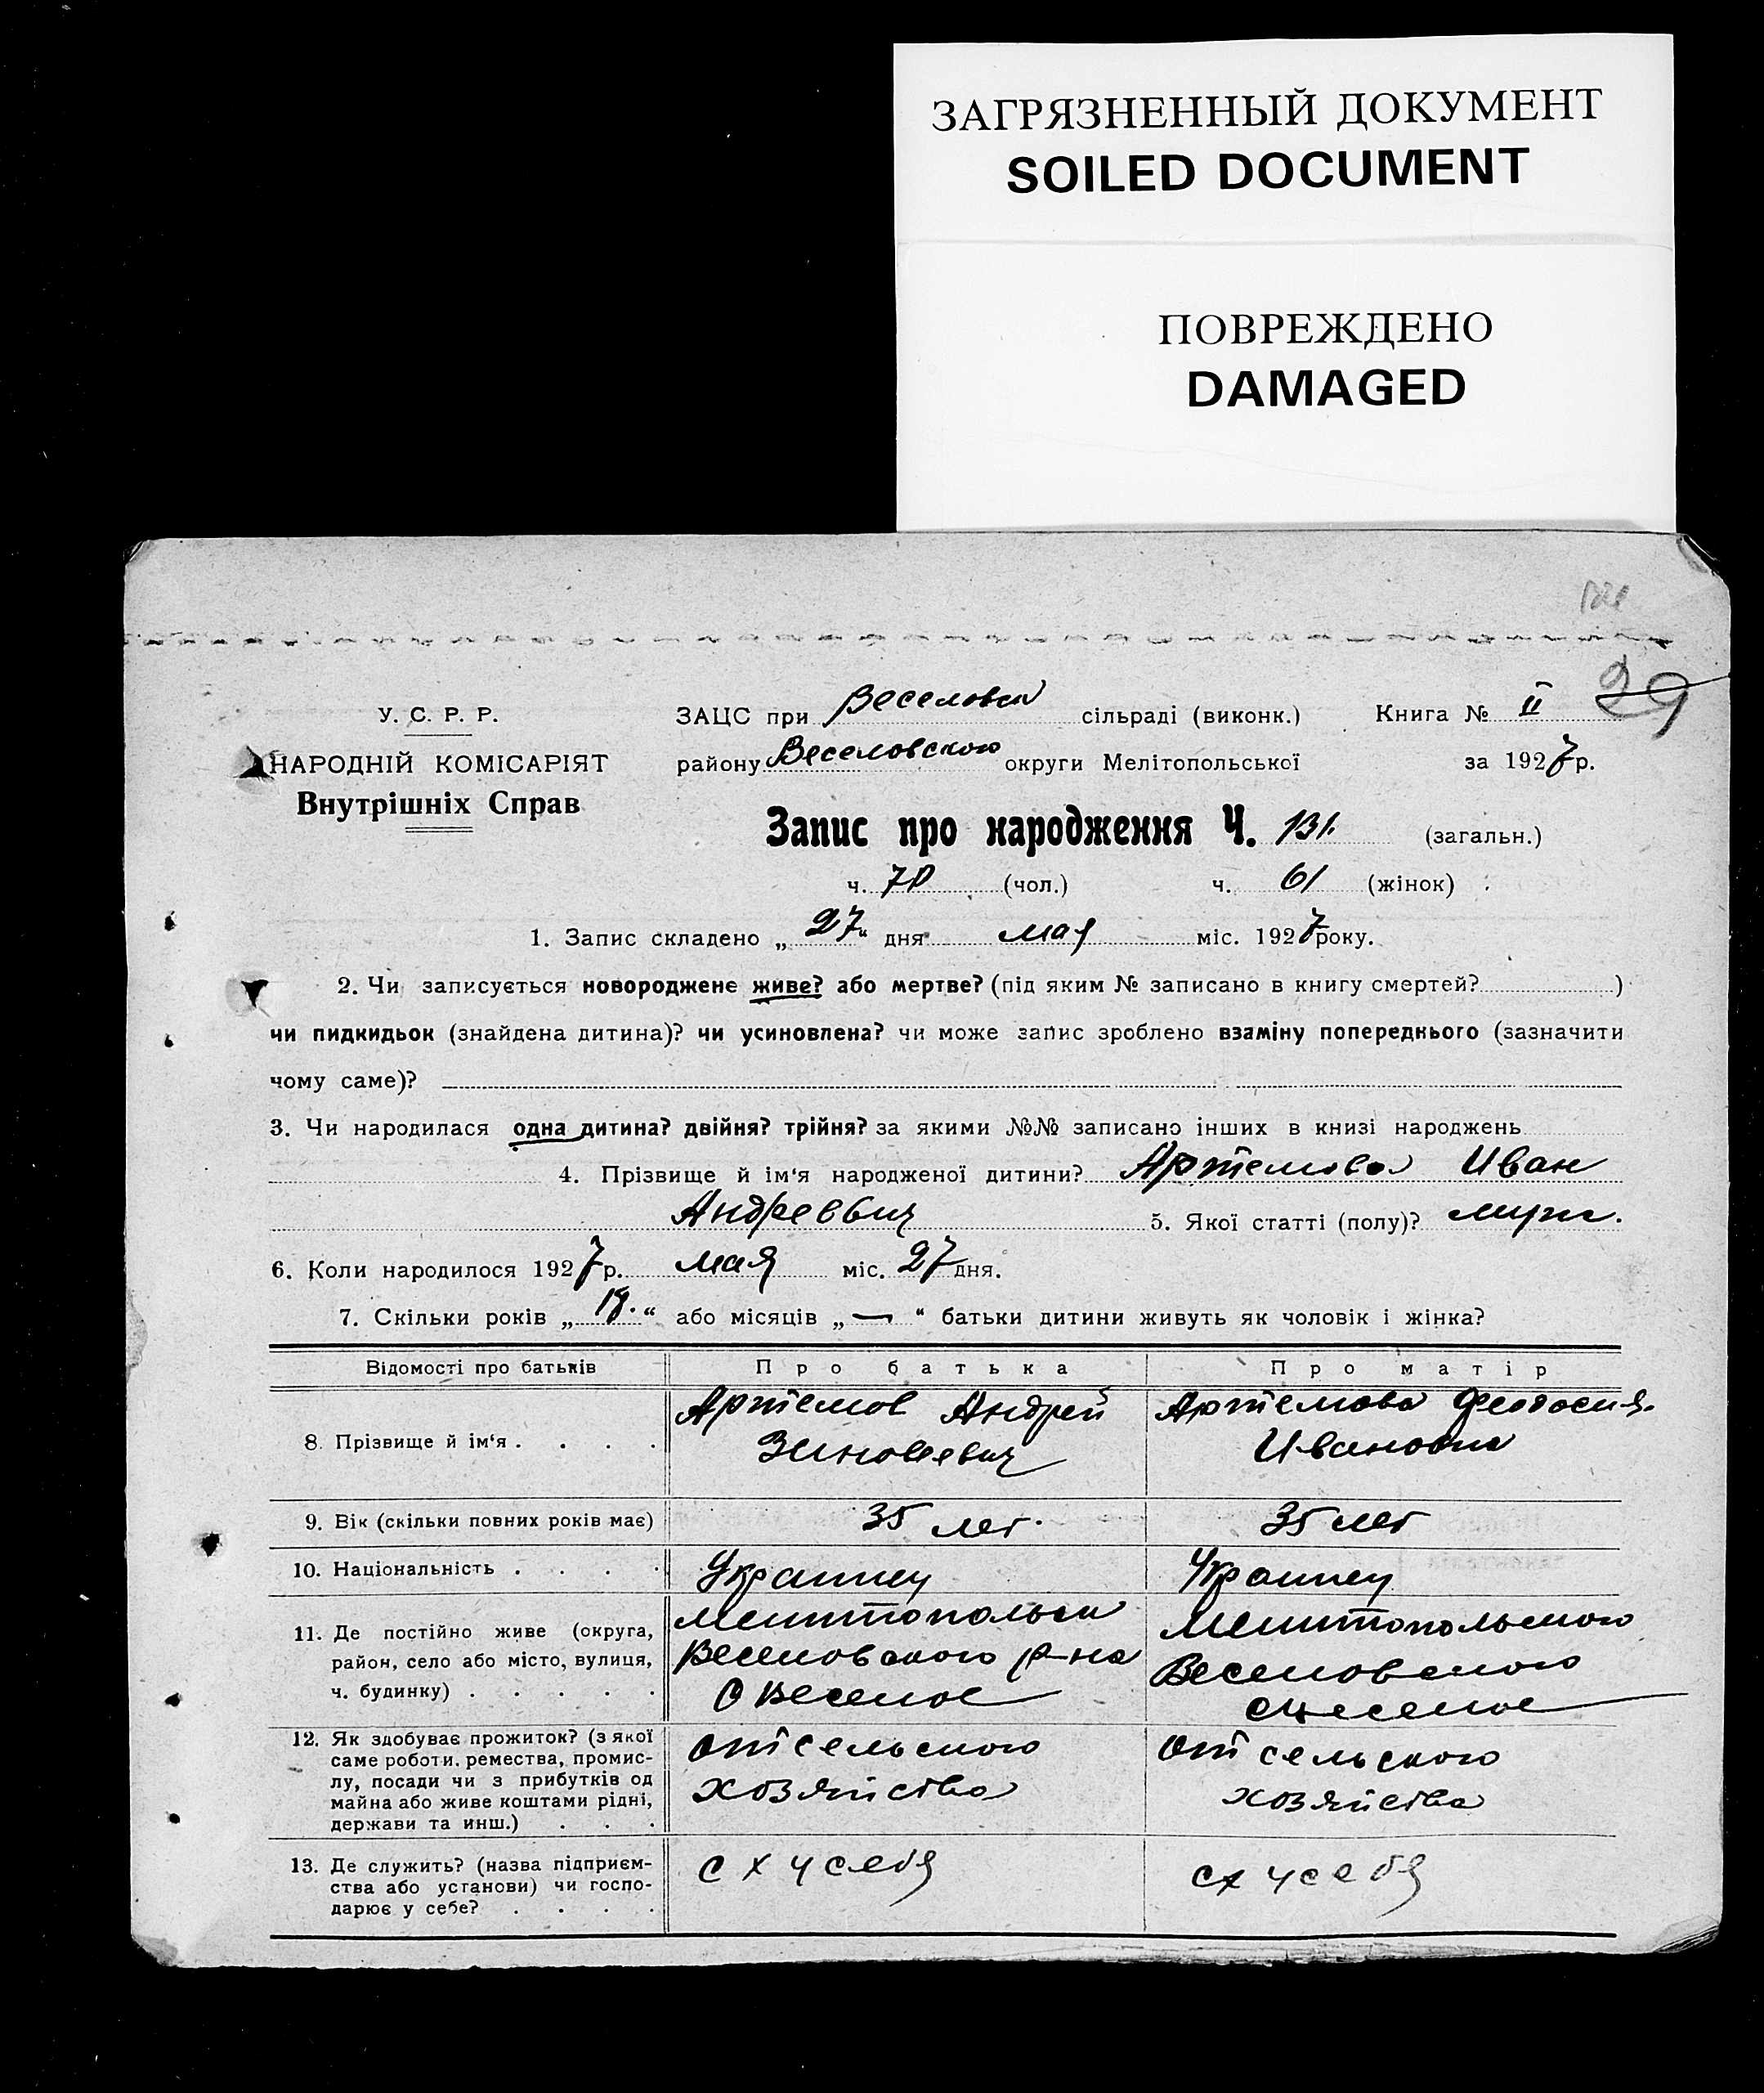 ЗАГРЯЗНЕННЫЙ ДОКУМЕНТ
SOILED DOCUMENT
ПОВРЕЖДЕНО
DAMAGED
29
У. С. Р. Р.
НАРОДНІЙ КОМІСАРІЯТ
Внутрішніх Справ
ЗАЦС при Веселовск сільраді (виконк.) Книга № II
району Веселовского округи Мелітопольської за 1927 р.
Запис про народження Ч. 131. (загальн.)
ч. 70 (чол.) ч. 61 (жінок)
1. Запис складено „27“ дня мая міс. 1927 року.
2. Чи записується новороджене живе? або мертве? (під яким № записано в книгу смертей? )
чи пидкидьок (знайдена дитина)? чи усиновлена? чи може запис зроблено взаміну попереднього (зазначити
чому саме)?
3. Чи народилася одна дитина? двійня? трійня? за якими №№ записано інших в книзі народжень
4. Прізвище й ім‘я народженої дитини? Артемов Иван
Андреевич 5. Якої статті (полу)?
6. Коли народилося 1927 р. мая міс. 27 дня.
7. Скільки років „ “ або місяців „—“ батьки дитини живуть як чоловік і жінка?
Відомості про батьків Про батька Про матір
8. Прізвище й ім‘я . . . . Артемов Андрей Зиновеевич Артемова Феодосия Ивановна
9. Вік (скільки повних років має) 35 лет. 35 лет
10. Національність . . . . Украинец Украинец
11. Де постійно живе (округа, район, село або місто, вулиця, ч. будинку) . . . . . Мелитопольск Веселовского р-на С Веселое Мелитопольского Веселовского с Веселое
12. Як здобуває прожиток? (з якої саме роботи, ремества, промислу, посади чи з прибутків од майна або живе коштами рідні, держави та инш.) . . . от сельского хозяйства от сельского хозяйства
13. Де служить? (назва підприємства або установи) чи господарює у себе? . . . . с х у себя сх у себя